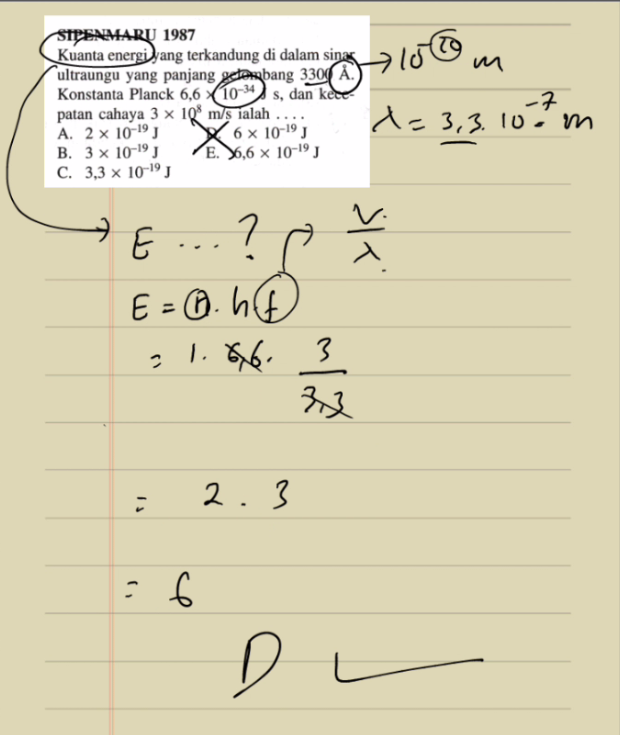 SIPENMARU 1987
Kuanta energi yang terkandung di dalam sinar
ultraungu yang panjang gelombang 3300 Å.
Konstanta Planck 6,6 × 10⁻³⁴ J s, dan kece-
patan cahaya 3 × 10⁸ m/s ialah . . . .
A. 2 × 10⁻¹⁹ J
D. 6 × 10⁻¹⁹ J
B. 3 × 10⁻¹⁹ J
E. 6,6 × 10⁻¹⁹ J
C. 3,3 × 10⁻¹⁹ J
10⁻¹⁰ m
λ = 3,3. 10⁻⁷ m
E ...? v/λ
E = n. h f
= 1. 6,6. 3/3,3
= 2 . 3
= 6
D